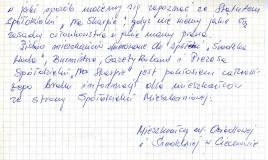 w jaki sposób możemy się zapoznać ze Statutem
Spółdzielni "Na Skarpie" gdyż nie mamy jakie są
zasady członkostwa i jakie mamy prawa.
Pismo mieszkańców skierowane do Spółdz. "Środka
", Burmistrza, Gazety i Prezesa
Spółdzielni "Na Skarpie" jest pokłosiem całkowi-
tego braku informacji dla mieszkańców
ze strony Spółdzielni Mieszkaniowej.
Mieszkańcy ul. Osiedlowej
i Środkowej w